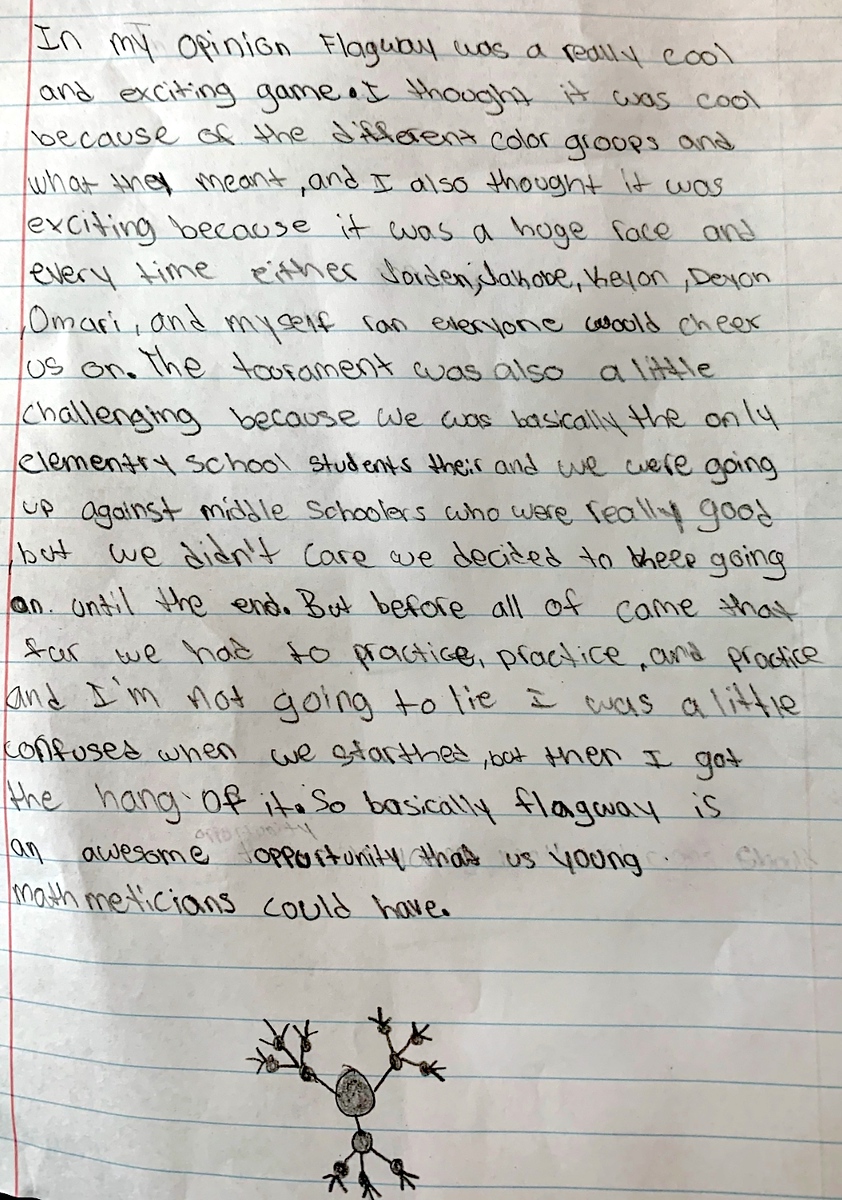 In my opinion Flagway was a really cool
and exciting game. I thought it was cool
because of the different color groops and
what they meant, and I also thought it was
exciting because it was a huge race and
every time either Jorden, Jakobe, Keyon, Devon
, Omari, and myself ran everyone would cheer
us on. The tourament was also a little
challenging because we was basically the only
elementry school students their and we were going
up against middle schoolers who were really good
,but we didn't care we decided to keep going
on until the end. But before all of came that
far we had to practice, practice, and practice
and I'm not going to lie I was a little
confused when we starthed, but then I got
the hang of it. So basically flagway is
an awesome opportunity that us young
mathmeticians could have.